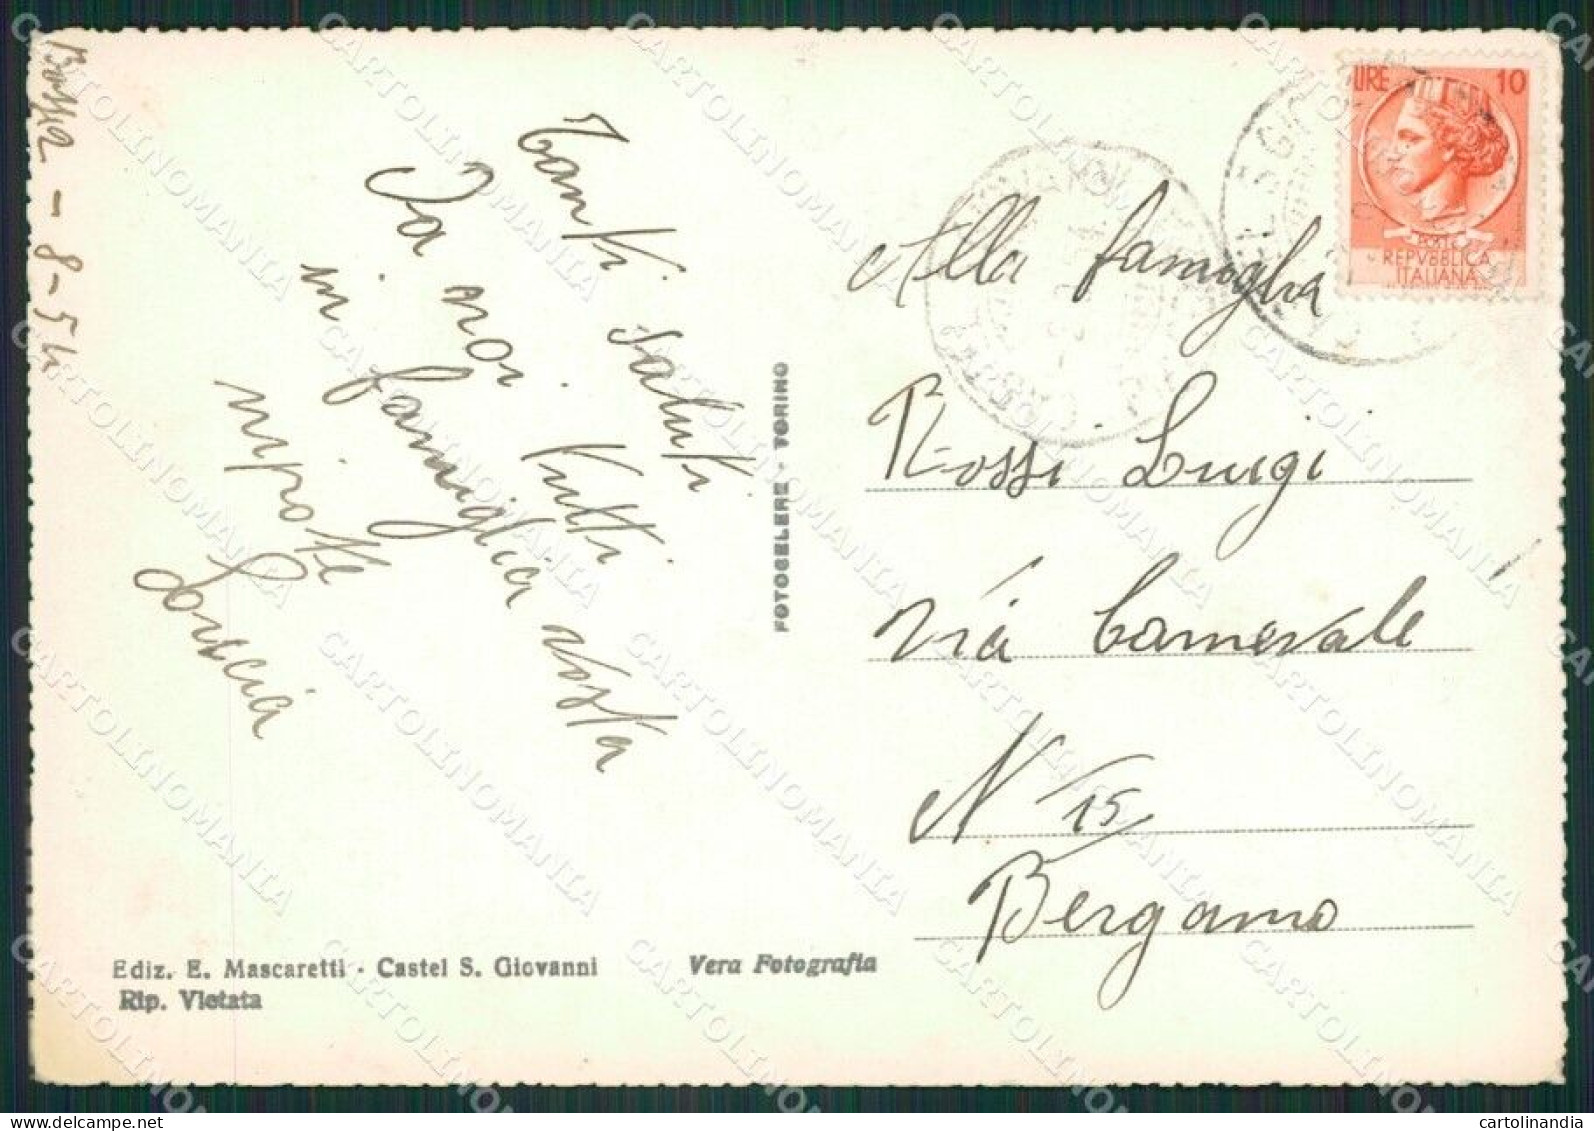 Tanti saluti
Da noi tutti
in famiglia vostra
nipote
Luccia
- 8-54
Alla famiglia
Rossi Luigi
Via Carnevale
N 15
Bergamo
LIRE 10
POSTE
REPVBBLICA
ITALIANA
FOTOCELERE - TORINO
Ediz. E. Mascaretti - Castel S. Giovanni
Vera Fotografia
Rip. Vietata
CARTOLINOMANIA
cartolinandia